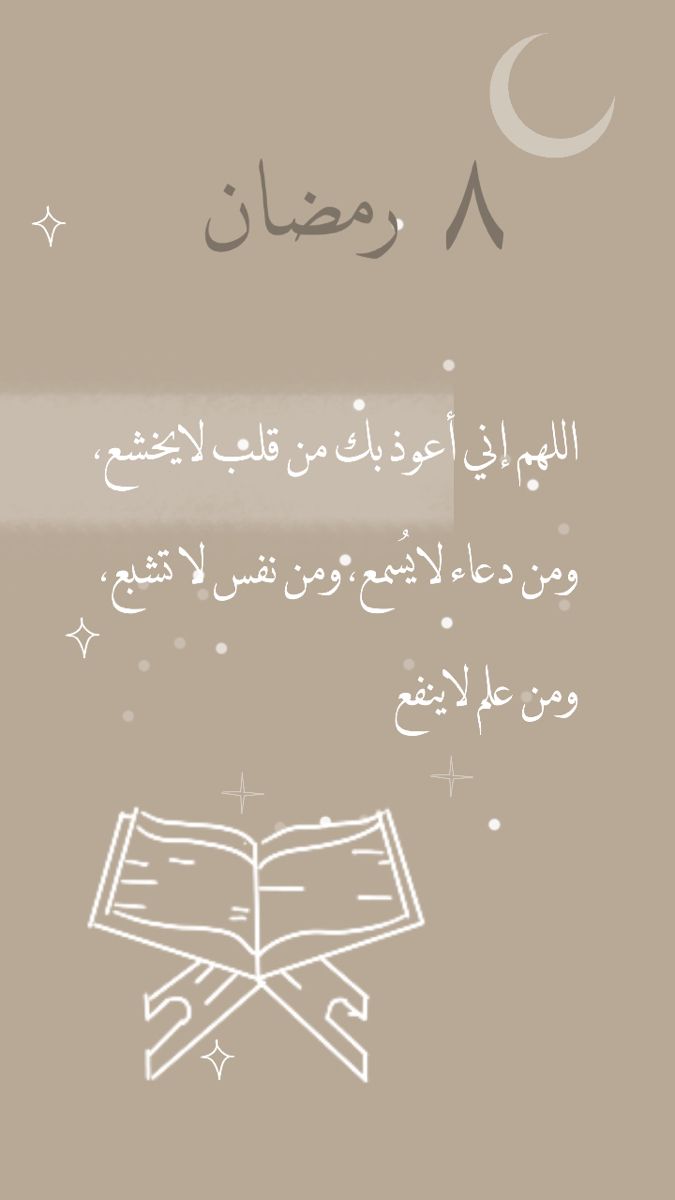 ٨ رمضان
اللهم إني أعوذ بك من قلب لايخشع،
ومن دعاء لايُسمع، ومن نفس لا تشبع،
ومن علم لاينفع